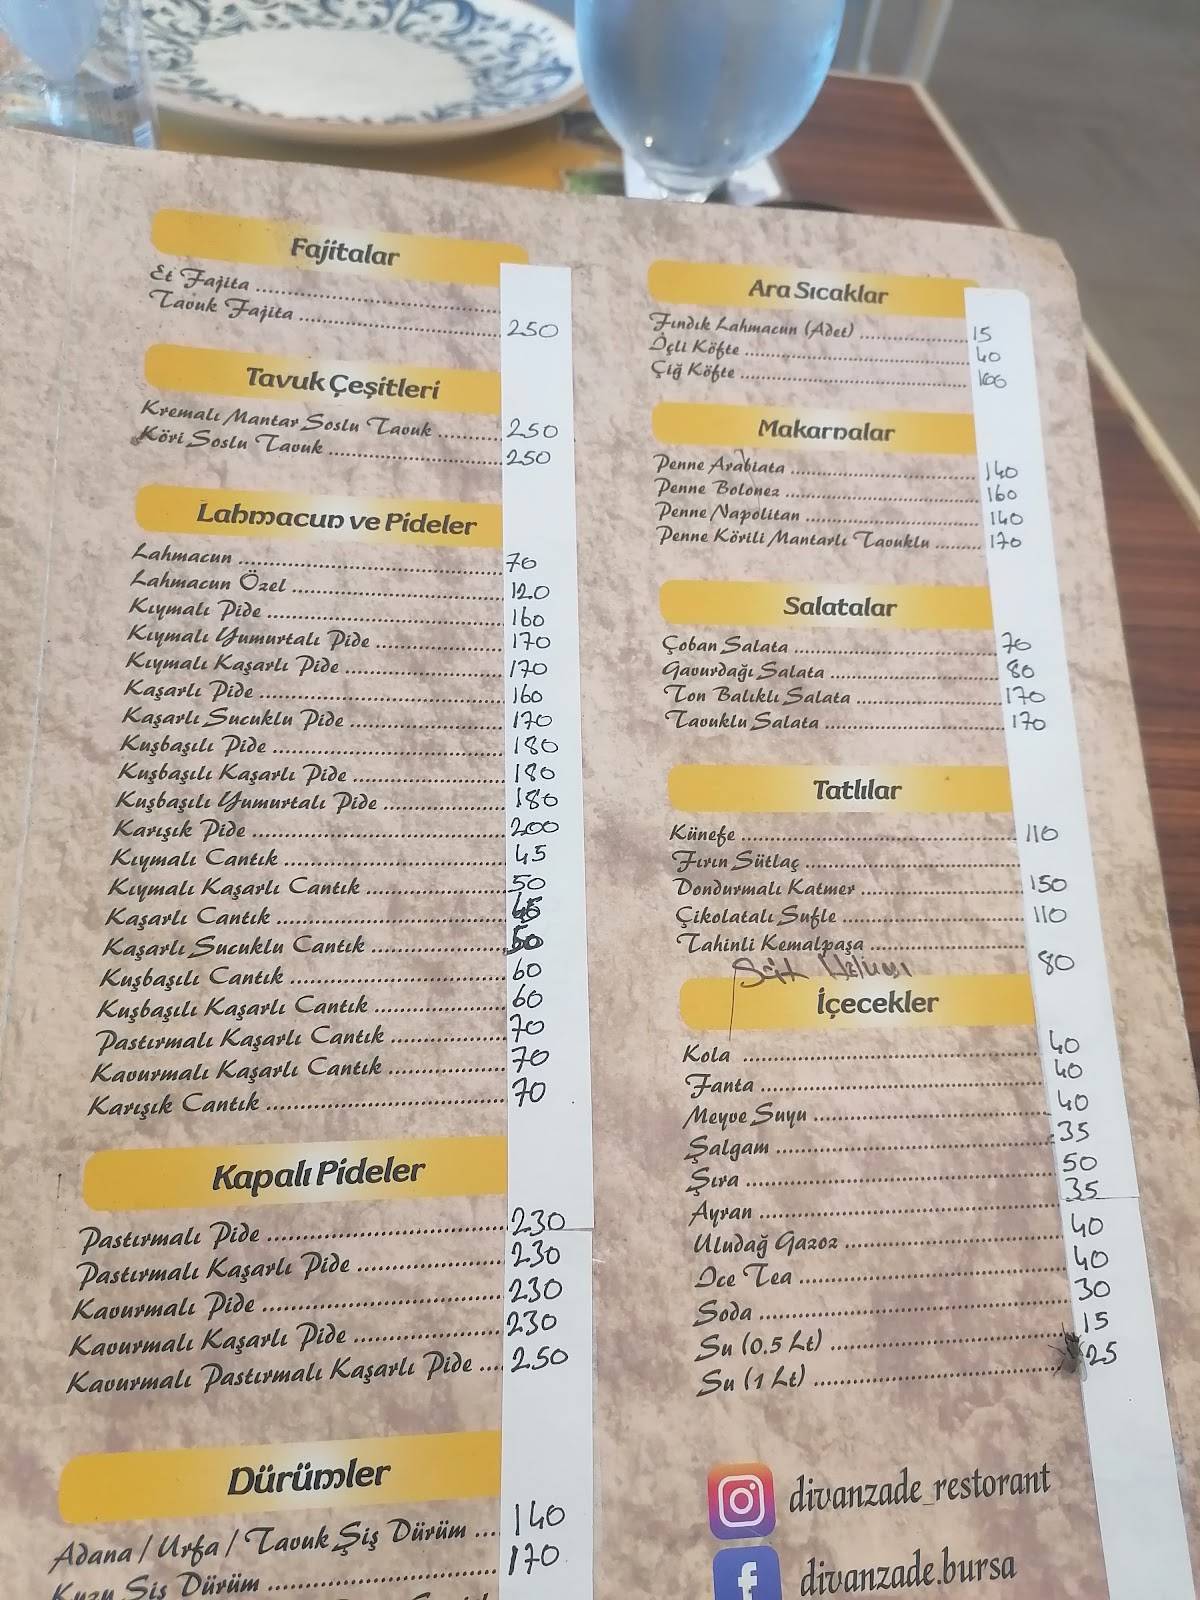 Fajitalar
Et Fajita
Tavuk Fajita 250
Tavuk Çeşitleri
Kremalı Mantar Soslu Tavuk 250
Köri Soslu Tavuk 250
Lahmacun ve Pideler
Lahmacun 70
Lahmacun Özel 120
Kıymalı Pide 160
Kıymalı Yumurtalı Pide 170
Kıymalı Kaşarlı Pide 170
Kaşarlı Pide 160
Kaşarlı Sucuklu Pide 170
Kuşbaşılı Pide 180
Kuşbaşılı Kaşarlı Pide 180
Kuşbaşılı Yumurtalı Pide 180
Karışık Pide 200
Kıymalı Cantık 45
Kıymalı Kaşarlı Cantık 50
Kaşarlı Cantık 45
Kaşarlı Sucuklu Cantık 50
Kuşbaşılı Cantık 60
Kuşbaşılı Kaşarlı Cantık 60
Pastırmalı Kaşarlı Cantık 70
Kavurmalı Kaşarlı Cantık 70
Karışık Cantık 70
Kapalı Pideler
Pastırmalı Pide 230
Pastırmalı Kaşarlı Pide 230
Kavurmalı Pide 230
Kavurmalı Kaşarlı Pide 230
Kavurmalı Pastırmalı Kaşarlı Pide 250
Dürümler
Adana / Urfa / Tavuk Şiş Dürüm 140
Kuzu Şiş Dürüm 170
Ara Sıcaklar
Fındık Lahmacun (Adet) 15
İçli Köfte 40
Çiğ Köfte 100
Makarnalar
Penne Arabiata 140
Penne Bolonez 160
Penne Napolitan 140
Penne Körili Mantarlı Tavuklu 170
Salatalar
Çoban Salata 70
Gavurdağı Salata 80
Ton Balıklı Salata 170
Tavuklu Salata 170
Tatlılar
Künefe 110
Fırın Sütlaç
Dondurmalı Katmer 150
Çikolatalı Sufle 110
Tahinli Kemalpaşa
80
İçecekler
Kola 40
Fanta 40
Meyve Suyu 40
Şalgam 35
Şıra 50
Ayran 35
Uludağ Gazoz 40
Ice Tea 40
Soda 30
Su (0.5 Lt) 15
Su (1 Lt) 25
divanzade_restorant
divanzade.bursa